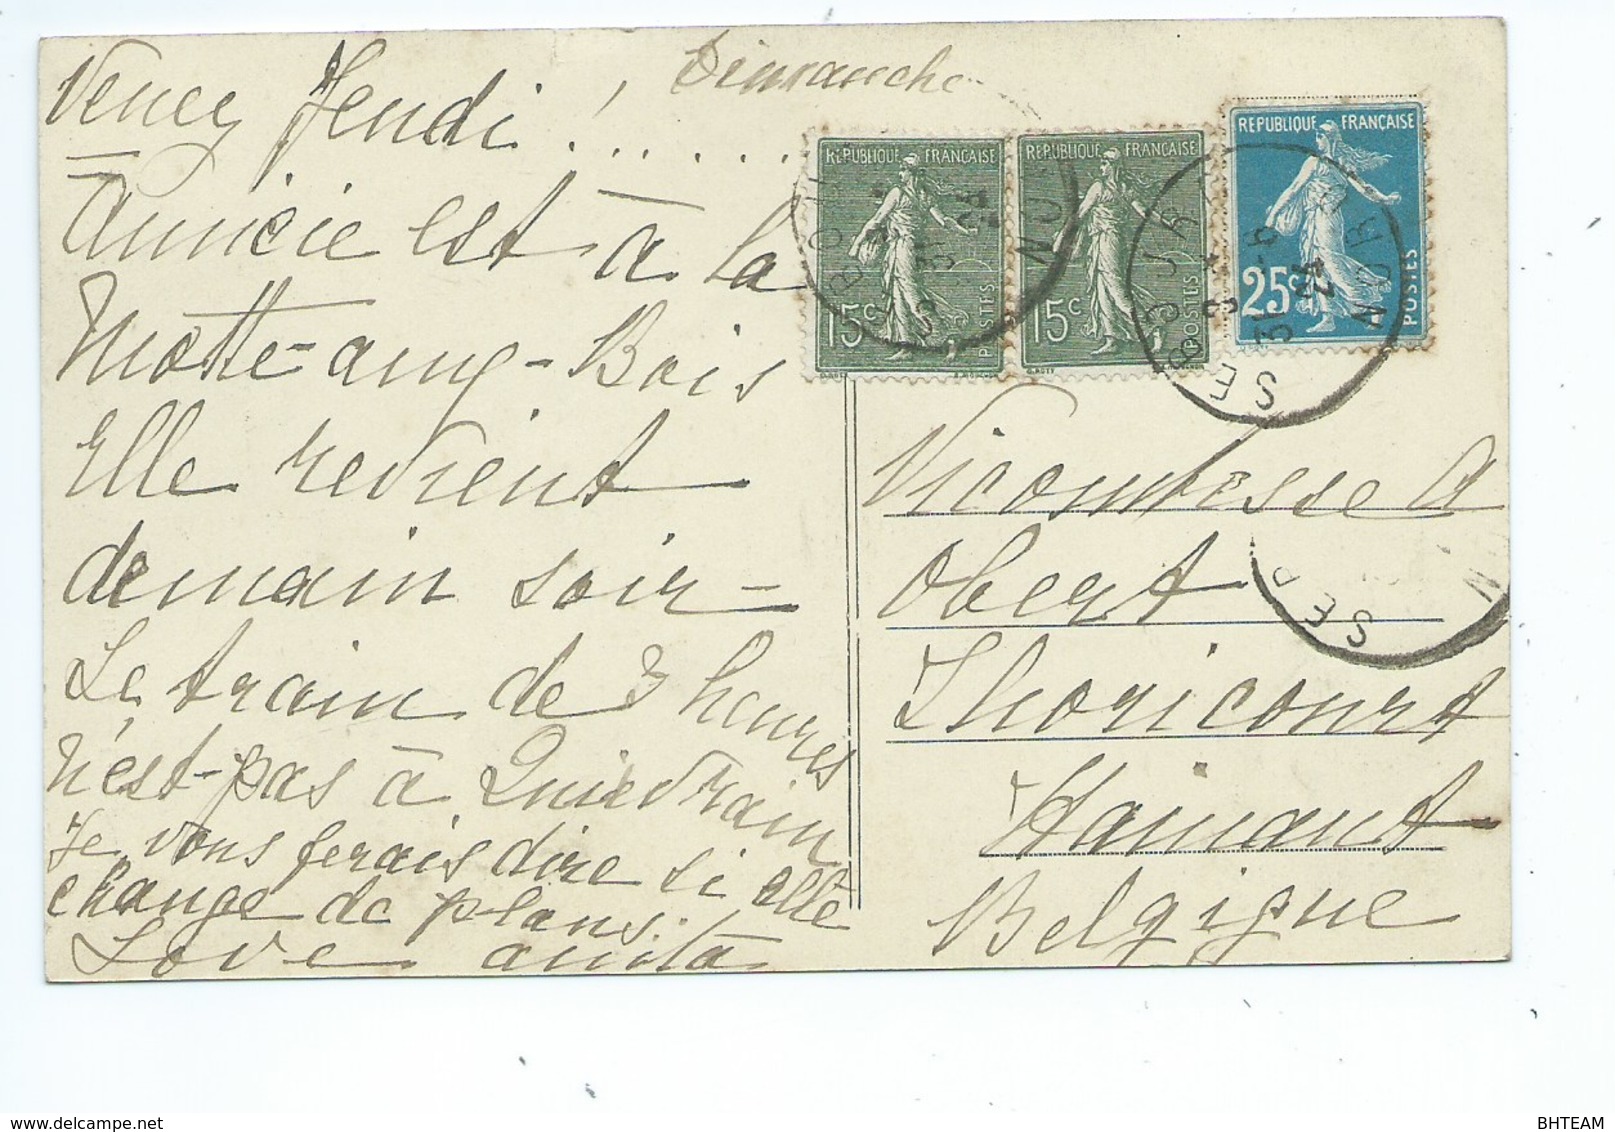 Dimanche
Venez Jeudi ! ......
Annicie est à la
Motte-aux-Bois
Elle revient
demain soir -
Le train de 3 heures
n'est-pas à Quievrain
Je vous ferais dire si elle
change de plans.
Love anita
REPUBLIQUE FRANÇAISE
15c
POSTES
REPUBLIQUE FRANÇAISE
15c
POSTES
REPUBLIQUE FRANÇAISE
25c
POSTES
Vicomtesse A
Obert
Thoricourt
Hainaut
Belgique
BHTEAM